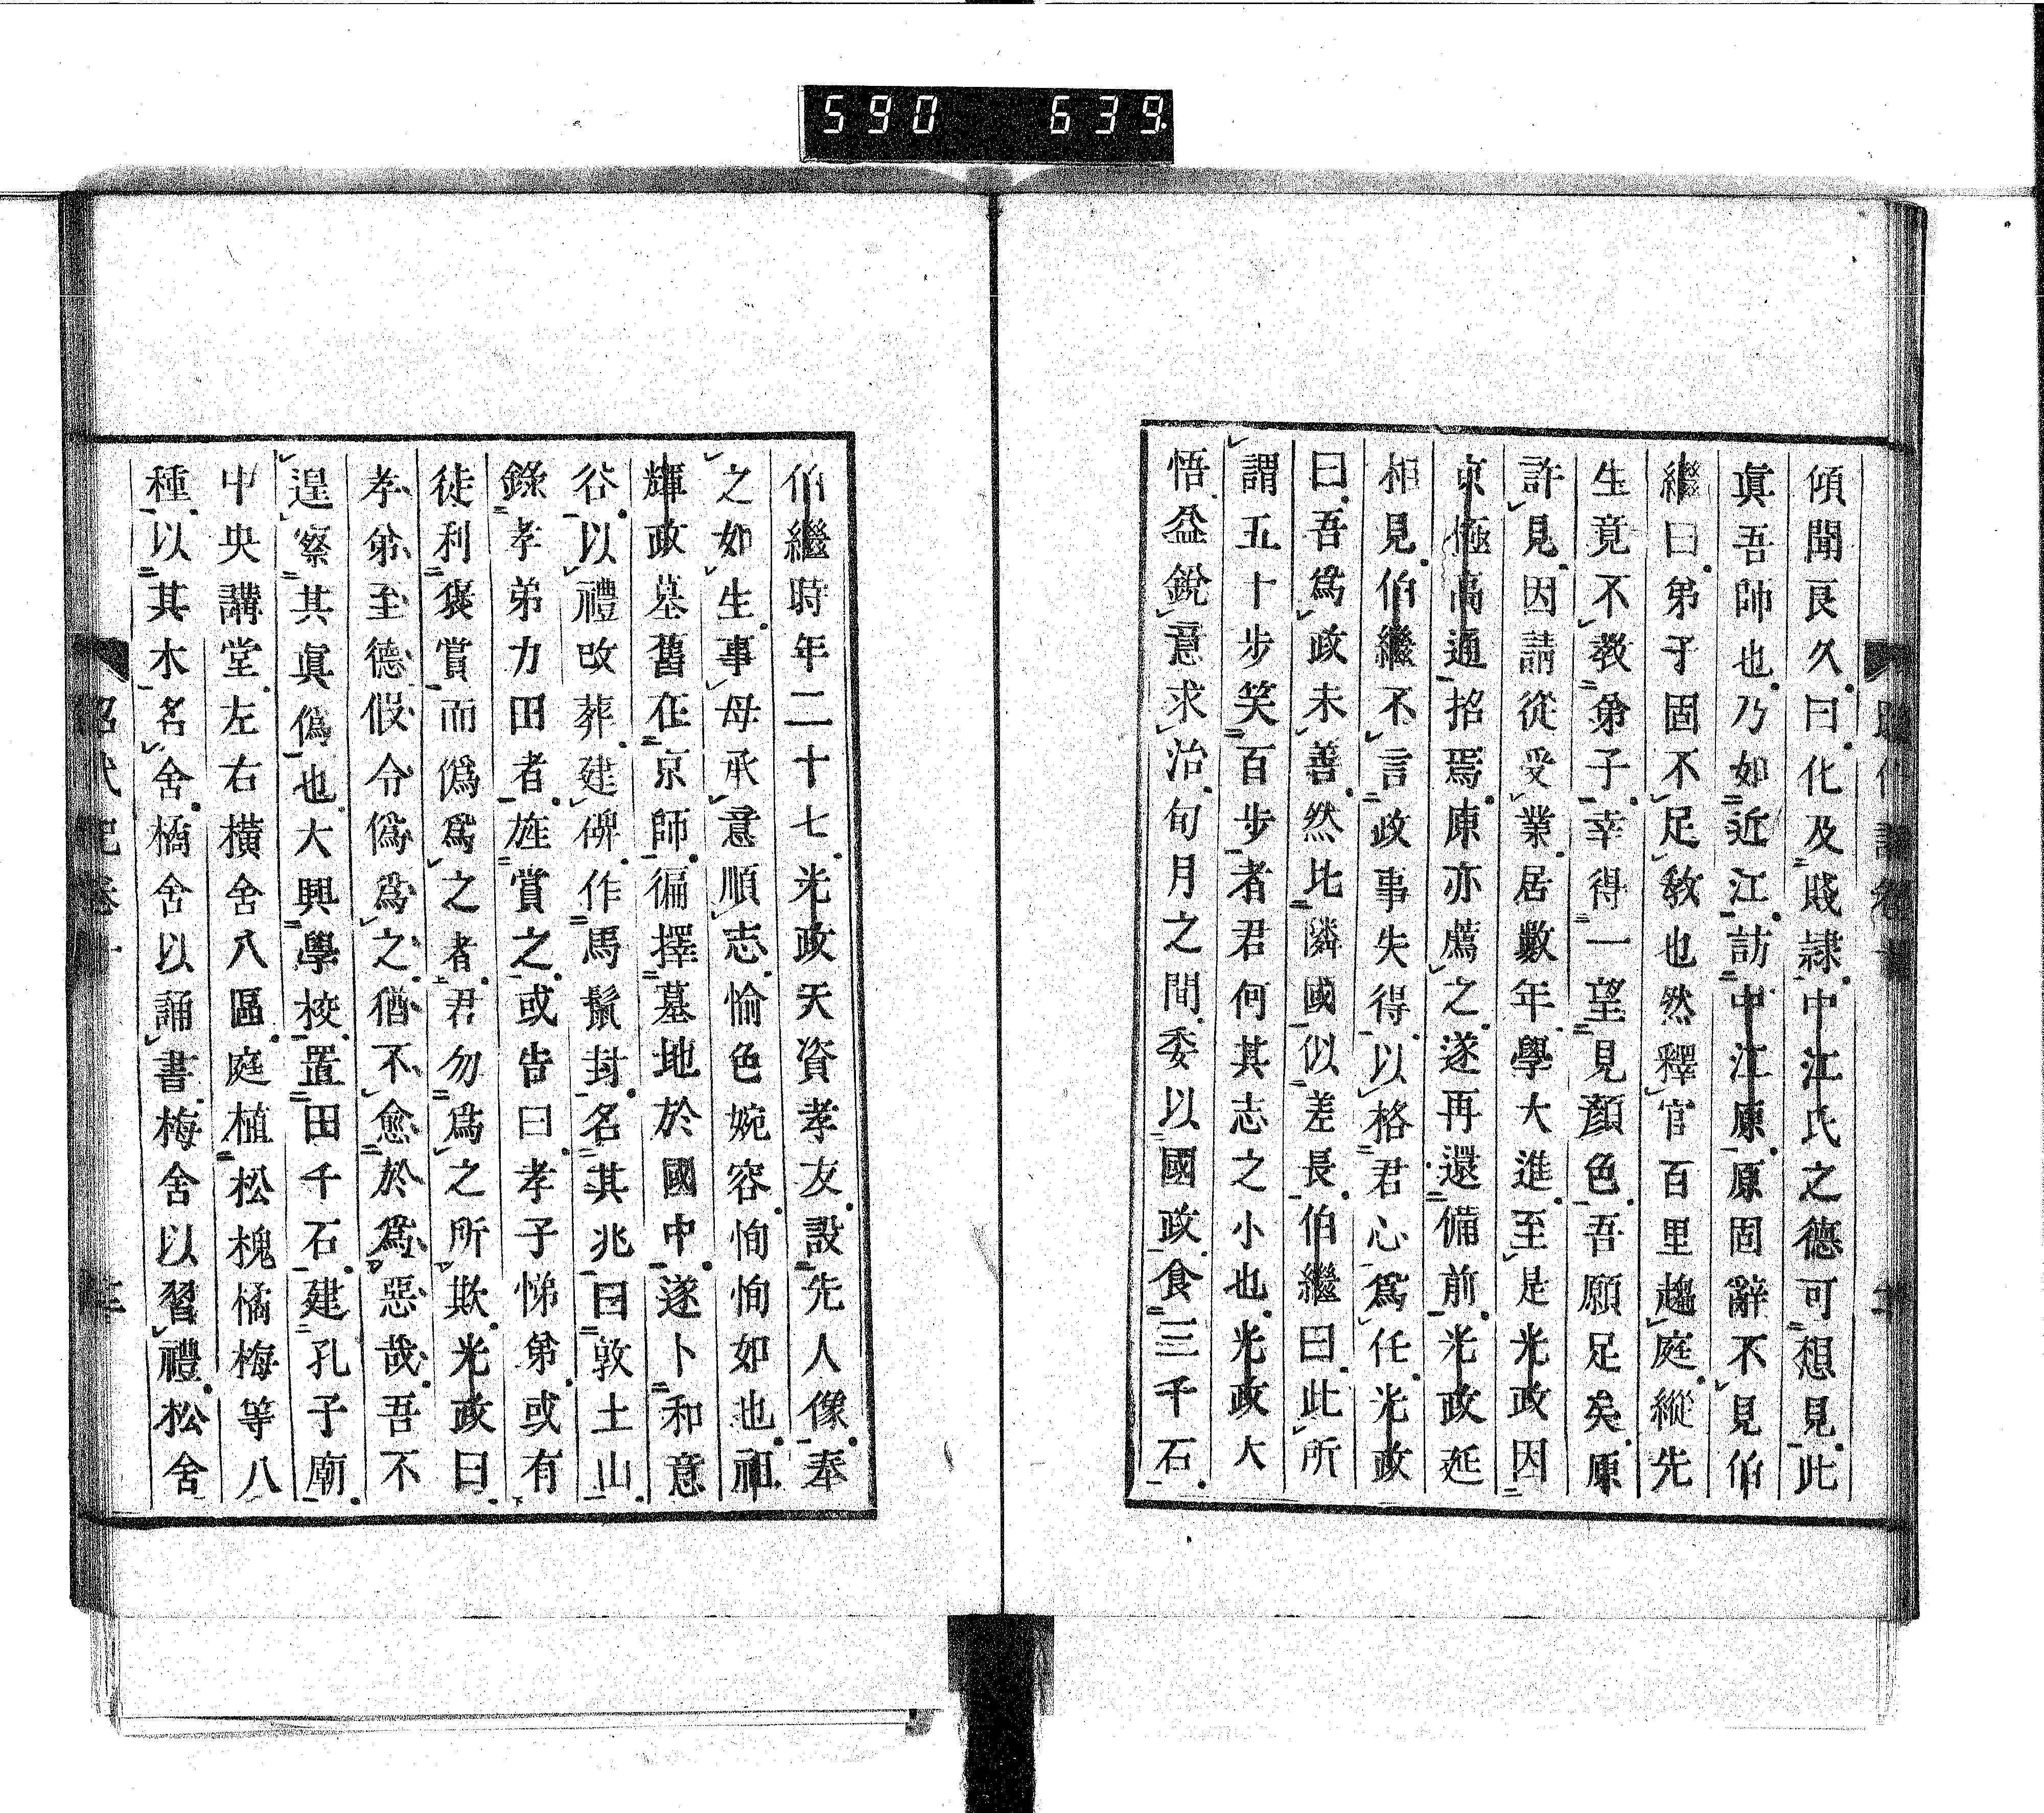 590 639
傾聞良久曰化及賤隷中江氏之德可想見此
眞吾師也乃如近江訪中江原原固辭不見伯
繼曰弟子固不足敎也然釋官百里趨庭縱先
生竟不敎弟子幸得一望見顏色吾願足矣原
許見因請從受業居數年學大進至是光政因
京極高通招焉原亦薦之遂再還備前光政延
相見伯繼不言政事失得以格君心爲任光政
曰吾爲政未善然比隣國似差長伯繼曰此所
謂五十步笑百步者君何其志之小也光政大
悟益銳意求治旬月之間委以國政食三千石
伯繼時年二十七光政天資孝友設先人像奉
之如生事母承意順志愉色婉容恂恂如也祖
輝政墓舊在京師徧擇墓地於國中遂卜和意
谷以禮改葬建碑作馬鬣封名其兆曰敦土山
錄孝弟力田者旌賞之或告曰孝子悌弟或有
徒利褒賞而僞爲之者君勿爲之所欺光政曰
孝弟至德假令僞爲之猶不愈於爲惡哉吾不
遑察其眞僞也大興學校置田千石建孔子廟
中央講堂左右橫舍八區庭植松槐橘梅等八
種以其木名舍橘舍以誦書梅舍以習禮松舍